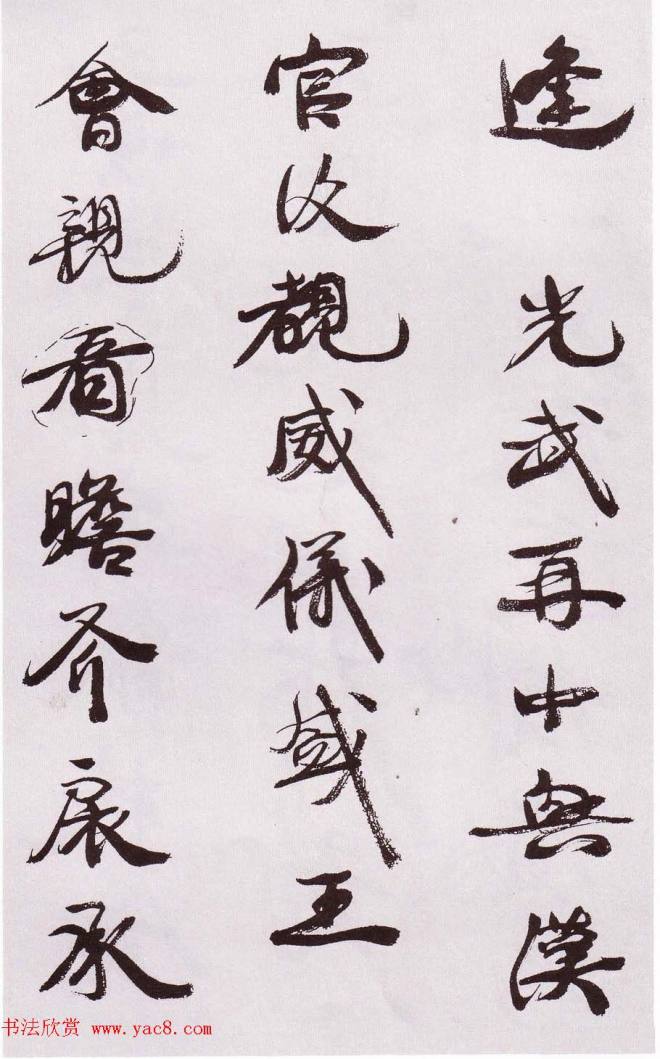 逢 光武再中興漢
官復覩威儀盛王
會親看瞻斧扆承
书法欣赏 www.yac8.com